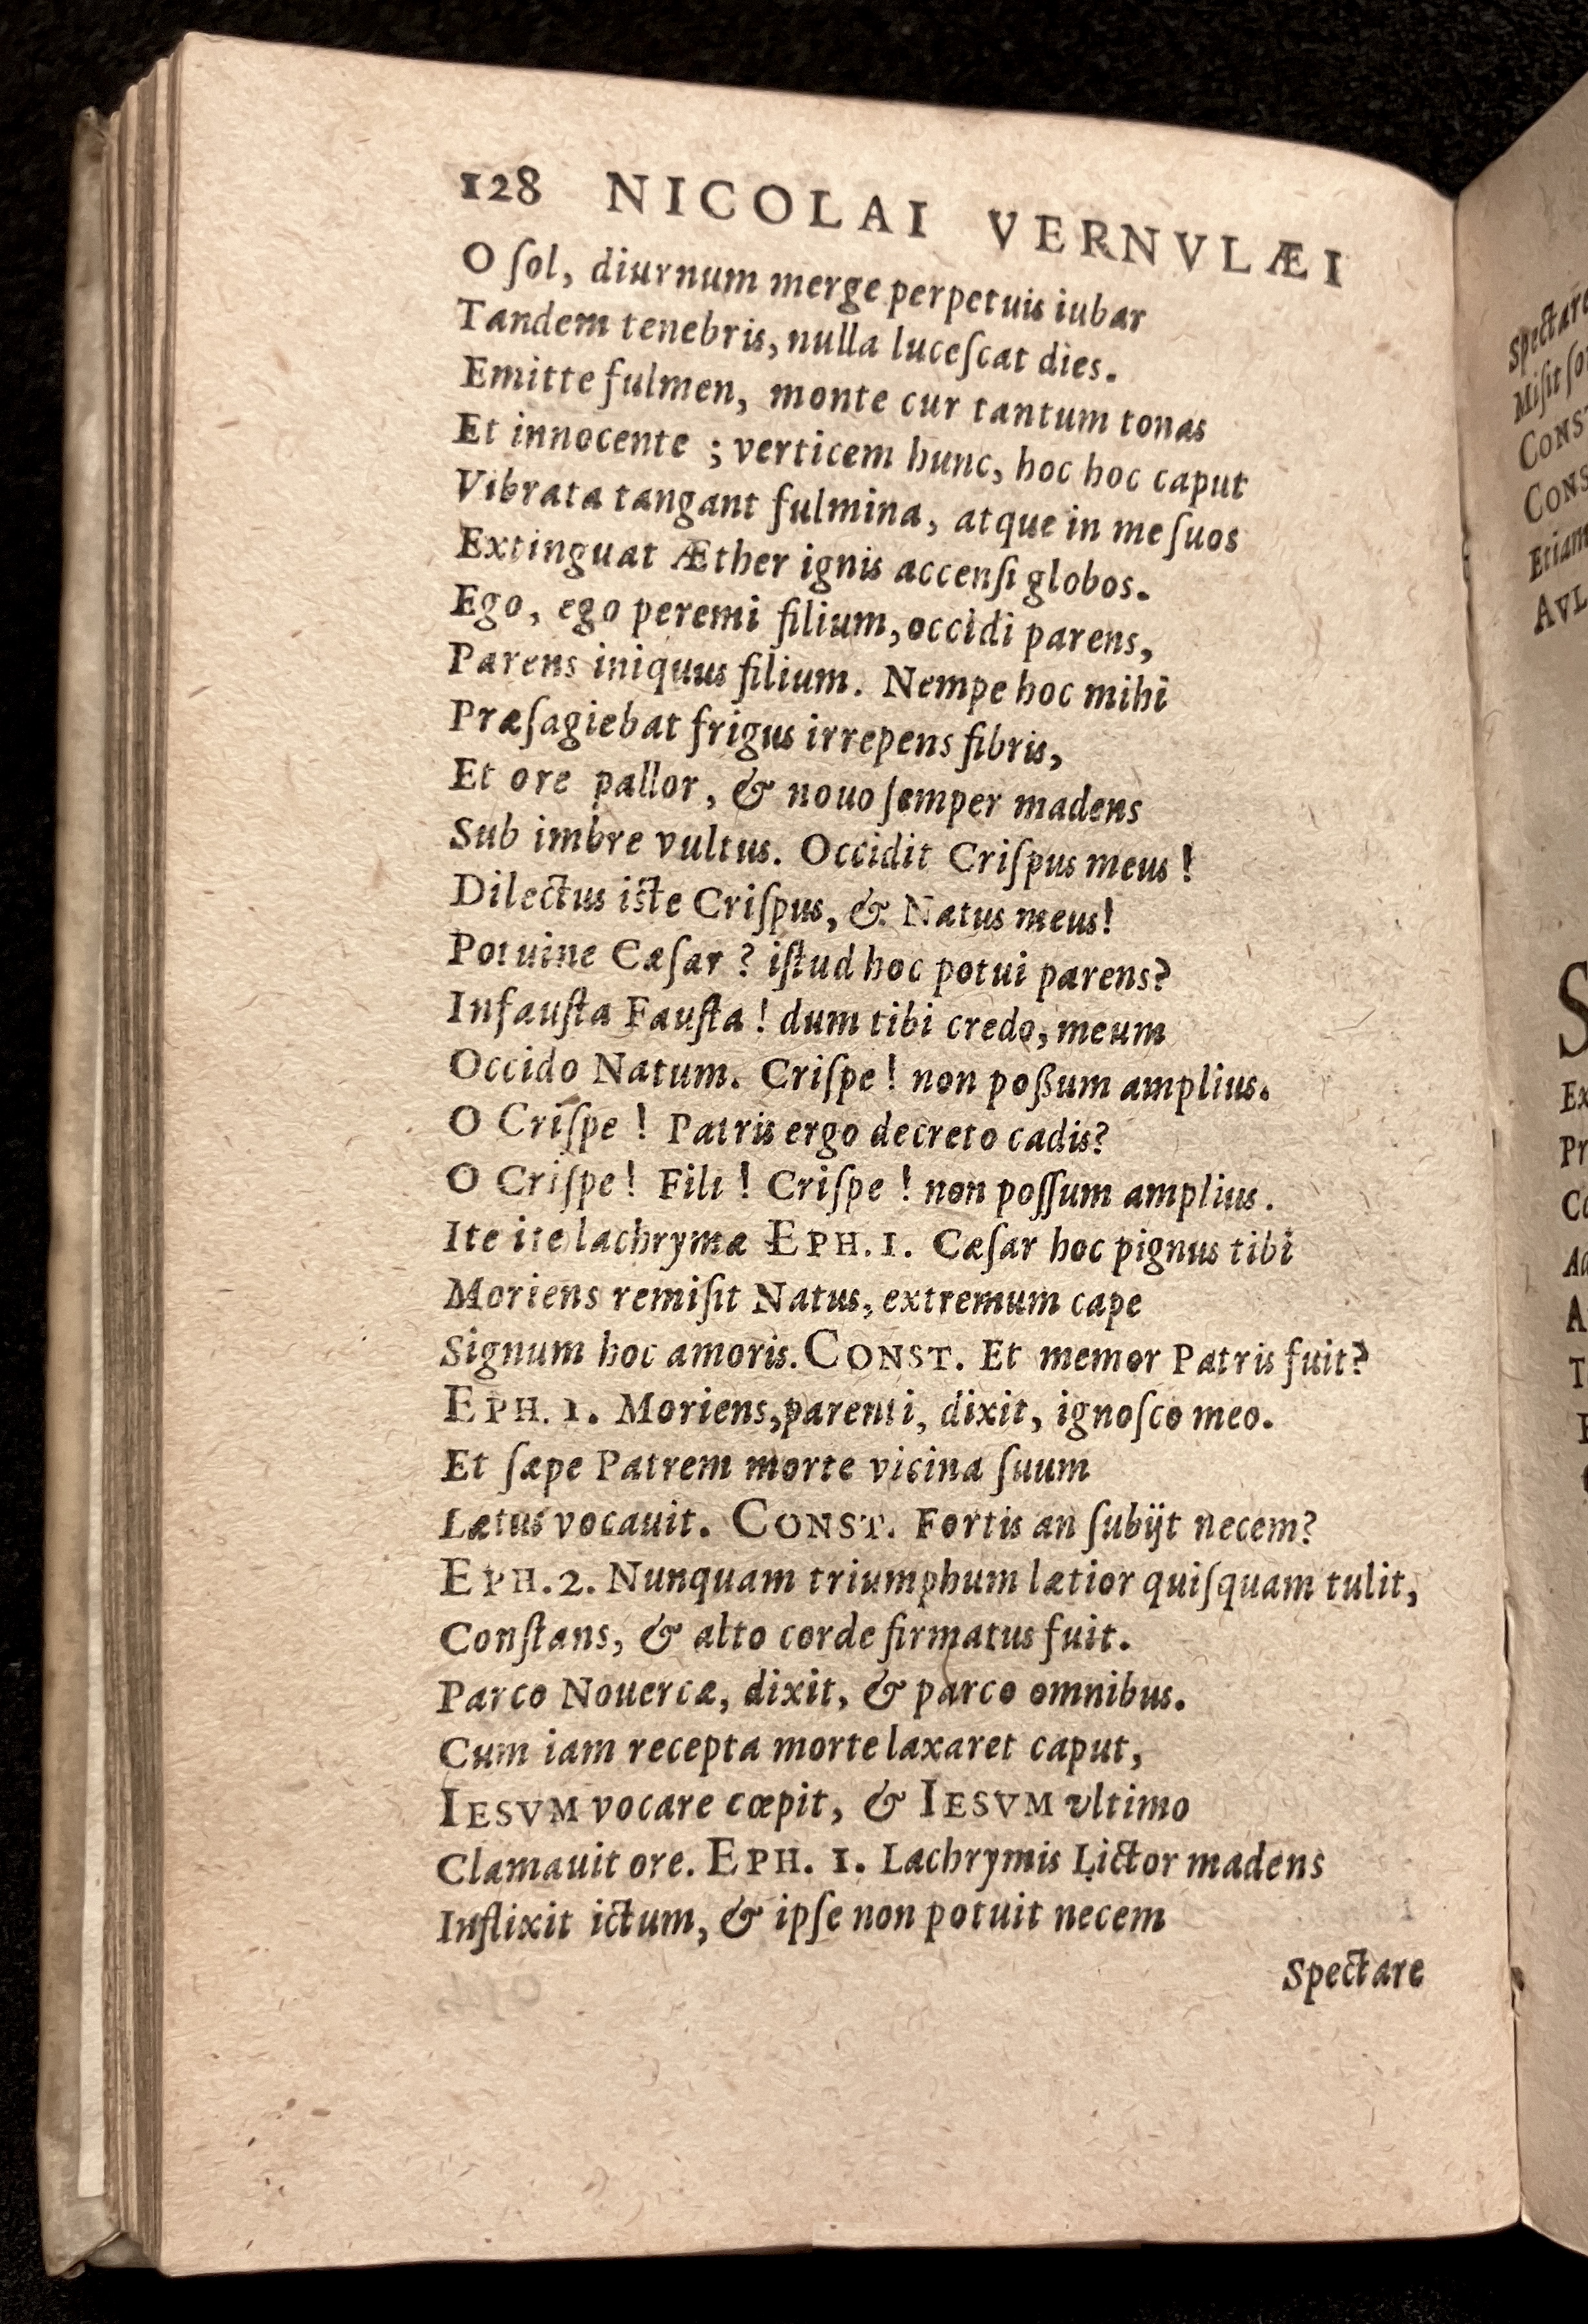 128 NICOLAI VERNVLÆI
O ſol, diurnum merge perpetuis iubar
Tandem tenebris, nulla luceſcat dies.
Emitte fulmen, monte cur tantum tonas
Et innocente ; verticem hunc, hoc hoc caput
Vibrata tangant fulmina, atque in me ſuos
Extinguat Æther ignis accenſi globos.
Ego, ego peremi filium, occidi parens,
Parens iniquus filium. Nempe hoc mihi
Præſagiebat frigus irrepens fibris,
Et ore pallor, & nouo ſemper madens
Sub imbre vultus. Occidit Criſpus meus !
Dilectus iste Criſpus, & Natus meus!
Potuine Cæſar ? iſtud hoc potui parens?
Infauſta Fauſta ! dum tibi credo, meum
Occido Natum. Criſpe ! non poßum amplius.
O Criſpe ! Patris ergo decreto cadis?
O Criſpe ! Fili ! Criſpe ! non poſſum amplius.
Ite ite lachrymæ EPH. 1. Cæſar hoc pignus tibi
Moriens remiſit Natus, extremum cape
Signum hoc amoris. CONST. Et memor Patris fuit?
EPH. 1. Moriens, parenti, dixit, ignoſco meo.
Et ſæpe Patrem morte vicina ſuum
Lætus vocauit. CONST. Fortis an ſubijt necem?
EPH. 2. Nunquam triumphum lætior quiſquam tulit,
Conſtans, & alto corde firmatus fuit.
Parco Nouercæ, dixit, & parco omnibus.
Cum iam recepta morte laxaret caput,
IESVM vocare cœpit, & IESVM vltimo
Clamauit ore. EPH. 1. Lachrymis Lictor madens
Inflixit ictum, & ipſe non potuit necem
Spectare
Spectare
Miſit
CONS
CONS
Etiam
AVL
S
Ex
Pr